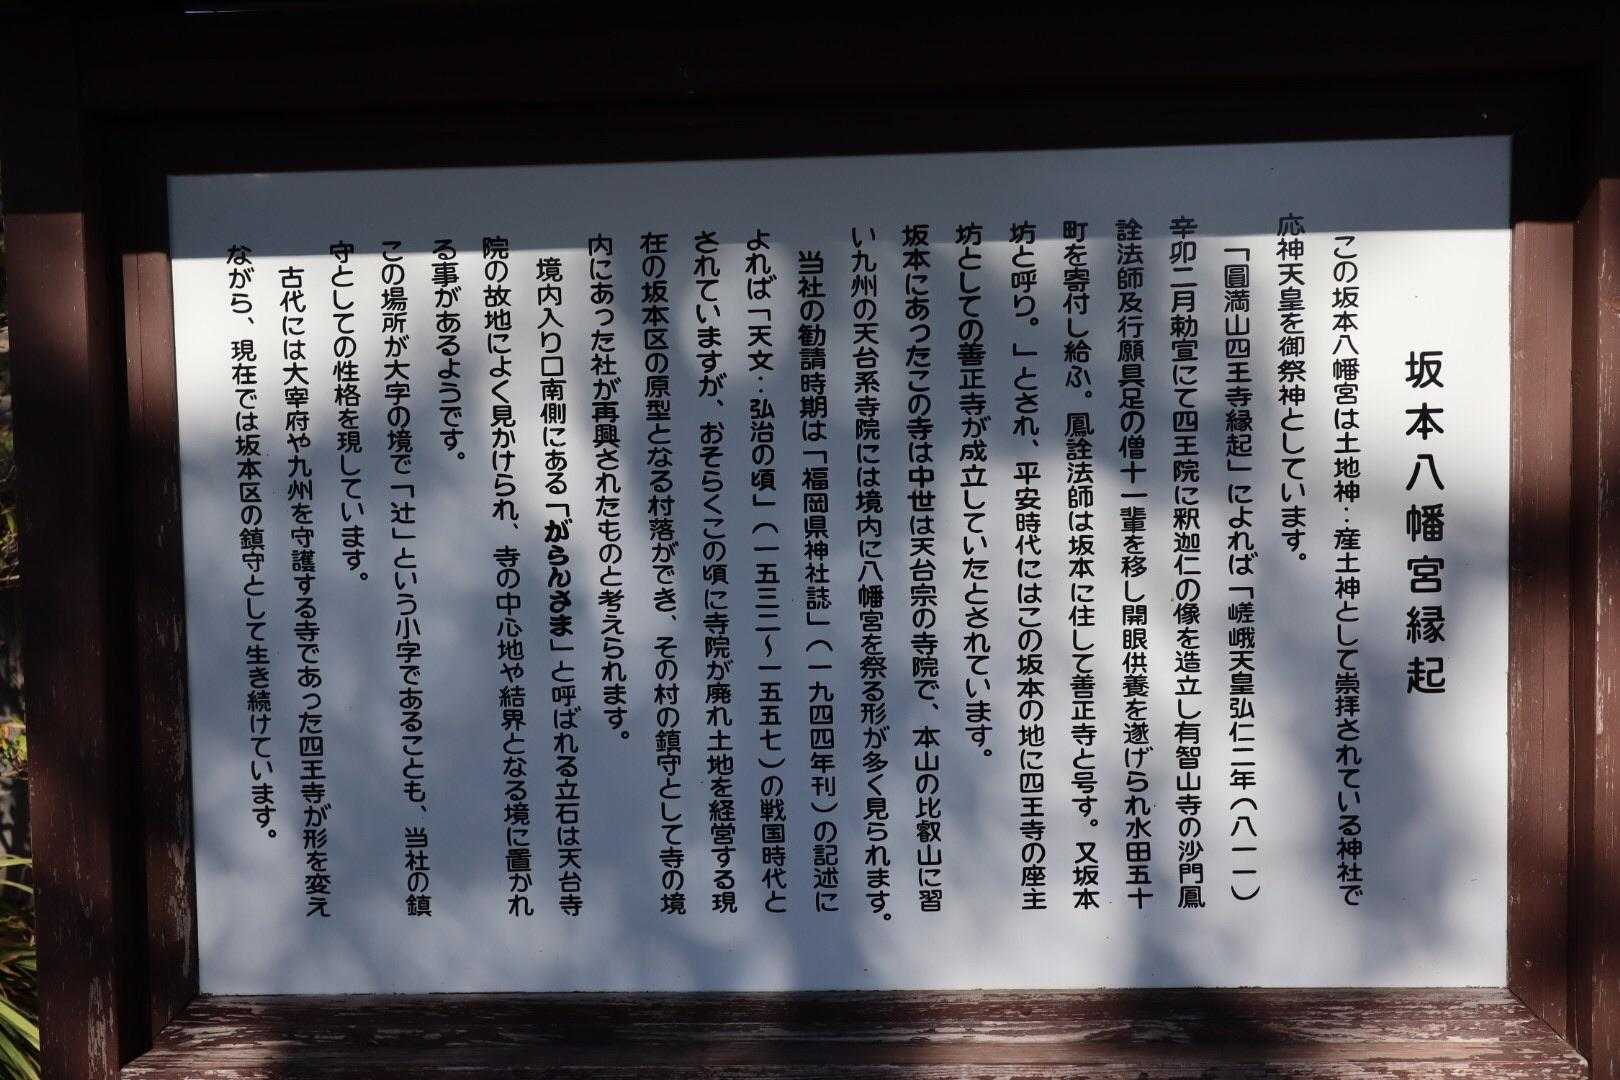 坂本八幡宮縁起
この坂本八幡宮は土地神：産土神として崇拝されている神社で
応神天皇を御祭神としています。
「圓満山四王寺縁起」によれば「嵯峨天皇弘仁二年（八一一）
辛卯二月勅宣にて四王院に釈迦仁の像を造立し有智山寺の沙門鳳
詮法師及行願具足の僧十一輩を移し開眼供養を遂げられ水田五十
町を寄付し給ふ。鳳詮法師は坂本に住して善正寺と号す。又坂本
坊と呼り。」とされ、平安時代にはこの坂本の地に四王寺の座主
坊としての善正寺が成立していたとされています。
坂本にあったこの寺は中世は天台宗の寺院で、本山の比叡山に習
い九州の天台系寺院には境内に八幡宮を祭る形が多く見られます。
当社の勧請時期は「福岡県神社誌」（一九四四年刊）の記述に
よれば「天文：弘治の頃」（一五三二～一五五七）の戦国時代と
されていますが、おそらくこの頃に寺院が廃れ土地を経営する現
在の坂本区の原型となる村落ができ、その村の鎮守として寺の境
内にあった社が再興されたものと考えられます。
境内入り口南側にある「がらんさま」と呼ばれる立石は天台寺
院の故地によく見かけられ、寺の中心地や結界となる境に置かれ
る事があるようです。
この場所が大字の境で「辻」という小字であることも、当社の鎮
守としての性格を現しています。
古代には大宰府や九州を守護する寺であった四王寺が形を変え
ながら、現在では坂本区の鎮守として生き続けています。